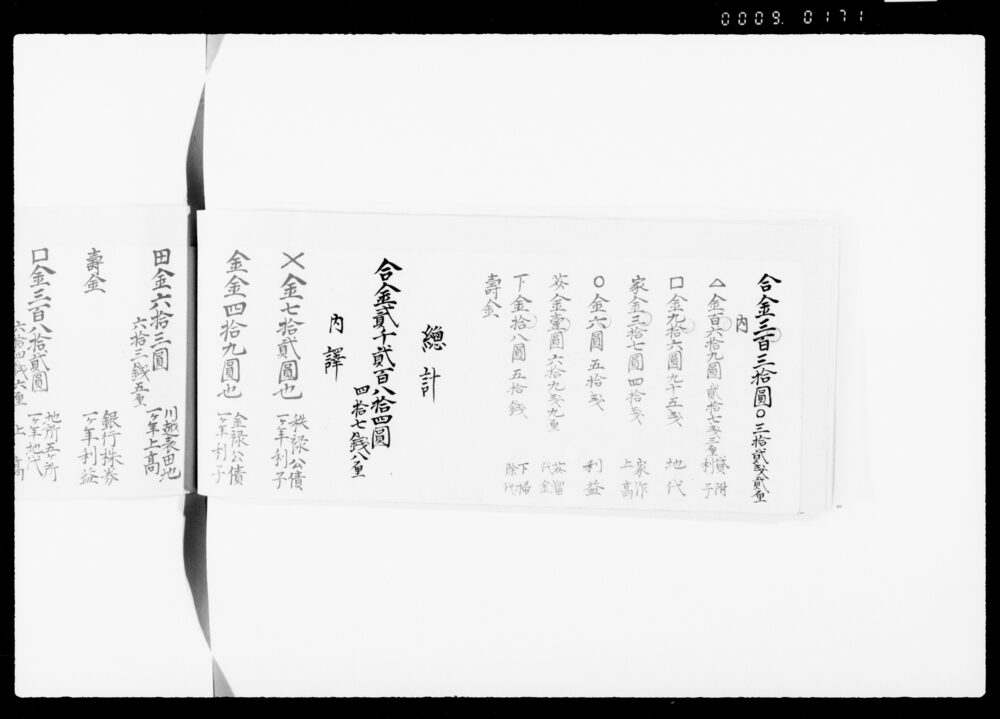 0009. 0171
合金三百三拾圓〇三拾貳戔貳厘
内
△金百六拾九圓貳拾七戔三厘 貸附利子
口金九拾六圓九十五戔 地代
家金三拾七圓四拾戔 家作上高
〇金六圓五拾戔 利益
金壹圓六拾九戔九厘 代金
下金拾八圓五拾銭 下掃除代
壽金
總計
合金貳千貳百八拾四圓
四拾七銭八厘
内譯
×金七拾貳圓也 秩禄公債一ヶ年利子
金金四拾九圓也 金禄公債一ヶ年利子
田金六拾三圓
六拾三銭五厘 川越表田地一ヶ年上高
壽金 銀行株券一ヶ年利益
口金三百八拾貳圓
六拾四銭六厘 地所五ヶ所一ヶ年地代上高